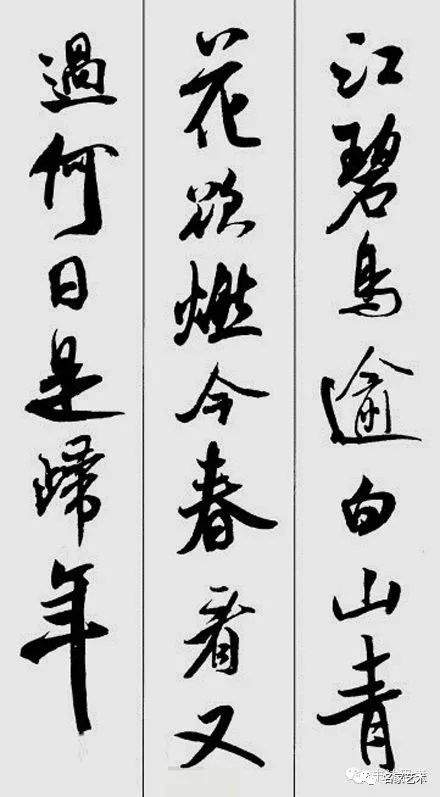 江碧鳥逾白山青
花欲燃今春看又
過何日是歸年
名家艺术